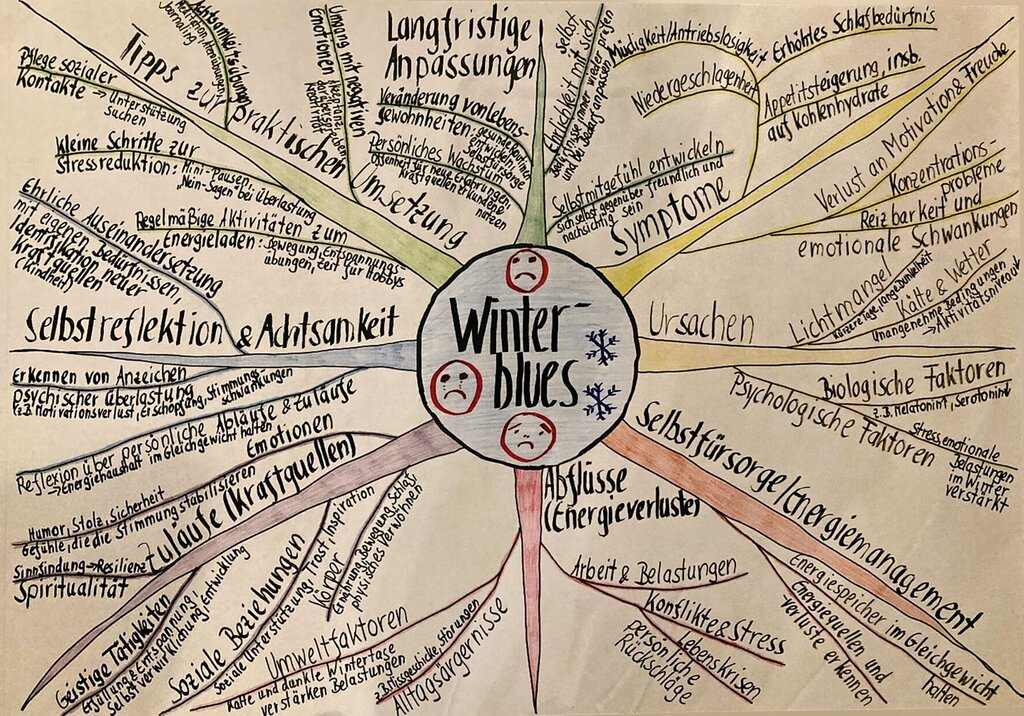 Winter-
blues
Langfristige
Anpassungen
Veränderung von Lebens-
gewohnheiten: gesunde Routinen
Selbstfürsorge
Persönliches Wachstum
Offenheit für neue Erfahrungen,
Kraftquellen erkunden &
nutzen
Ehrlichkeit mit sich
selbst
und bei Bedarf anpassen
Selbstmitgefühl entwickeln
sich selbst gegenüber freundlich und
nachsichtig sein
Symptome
Müdigkeit/Antriebslosigkeit
Niedergeschlagenheit
Erhöhtes Schlafbedürfnis
Appetitsteigerung, insb.
auf Kohlenhydrate
Verlust an Motivation & Freude
Konzentrations-
probleme
Reizbarkeit und
emotionale Schwankungen
Ursachen
Lichtmangel
kürzere Tage, lange Dunkelheit
Kälte & Wetter
Unangenehme Bedingungen
→ Aktivitätsniveau↓
Biologische Faktoren
z.B. Melatonin↑, Serotonin↓
Psychologische Faktoren
Stress, emotionale
Belastungen
im Winter
verstärkt
Selbstfürsorge/Energiemanagement
Energiespeicher im Gleichgewicht
halten
Energiequellen und
Verluste erkennen
Abflüsse
(Energieverluste)
Arbeit & Belastungen
Konflikte & Stress
Lebenskrisen
persönliche
Rückschläge
Alltagsärgernisse
z.B. Missgeschicke, Störungen
Umweltfaktoren
Kalte und dunkle Wintertage
verstärken Belastungen
Zuläufe (Kraftquellen)
Emotionen
Humor, Stolz, Sicherheit
Gefühle, die die Stimmung stabilisieren
Sinnfindung → Resilienz↑
Spiritualität
Geistige Tätigkeiten
Erfüllung, Entspannung,
Selbstverwirklichung, Entwicklung
Soziale Beziehungen
Soziale Unterstützung, Trost, Inspiration
Körper
Ernährung, Bewegung, Schlaf
physisches Verwöhnen
Selbstreflektion & Achtsamkeit
Ehrliche Auseinandersetzung
mit eigenen Bedürfnissen,
Identifikation neuer
Kraftquellen
(Kindheit)
Erkennen von Anzeichen
psychischer Überlastung
z.B. Motivationsverlust, Erschöpfung, Stimmungs-
schwankungen
Reflexion über persönliche Abläufe & Zuläufe
→ Energiehaushalt im Gleichgewicht halten
Tipps zur praktischen Umsetzung
Pflege sozialer
Kontakte → Unterstützung
suchen
Kleine Schritte zur
Stressreduktion: Mini-Pausen,
"Nein-Sagen" bei Überlastung
Regelmäßige Aktivitäten zum
Energieladen: Bewegung, Entspannungs-
übungen, Zeit für Hobbys
Achtsamkeitsübungen
Umgang mit negativen
Emotionen